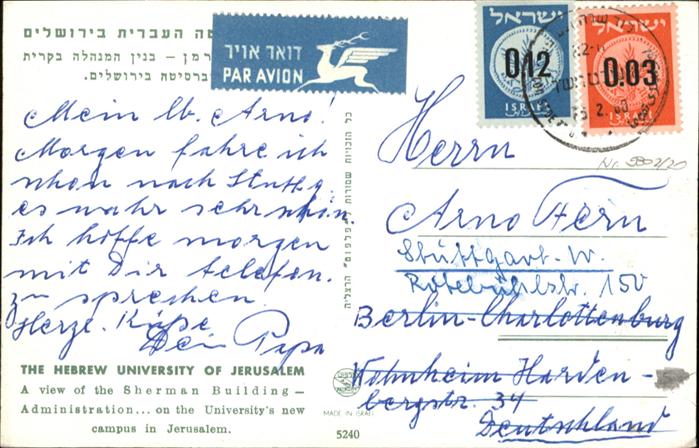 דואר אויר
PAR AVION
העברית בירושלים
בנין המנהלה בקרית
בירושלים.
Mein lb. Arno!
Morgen fahre ich
schon nach Stuttg.
es wahr sehr schön.
Ich hoffe morgen
mit Dir telefon.
zu sprechen
Herzl. Küße
Dein Papa
THE HEBREW UNIVERSITY OF JERUSALEM
A view of the Sherman Building –
Administration... on the University's new
campus in Jerusalem.
כל הזכויות שמורות
הרצליה
MADE IN ISRAEL
5240
ישראל
0.12
ISRAEL
ישראל
0.03
ISRAEL
2. 60
Nr. 5802/20
Herrn
Arno Fern
Stuttgart-W.
Rotebühlstr. 150
Berlin-Charlottenburg
Wohnheim Harden-
bergstr. 34
Deutschland